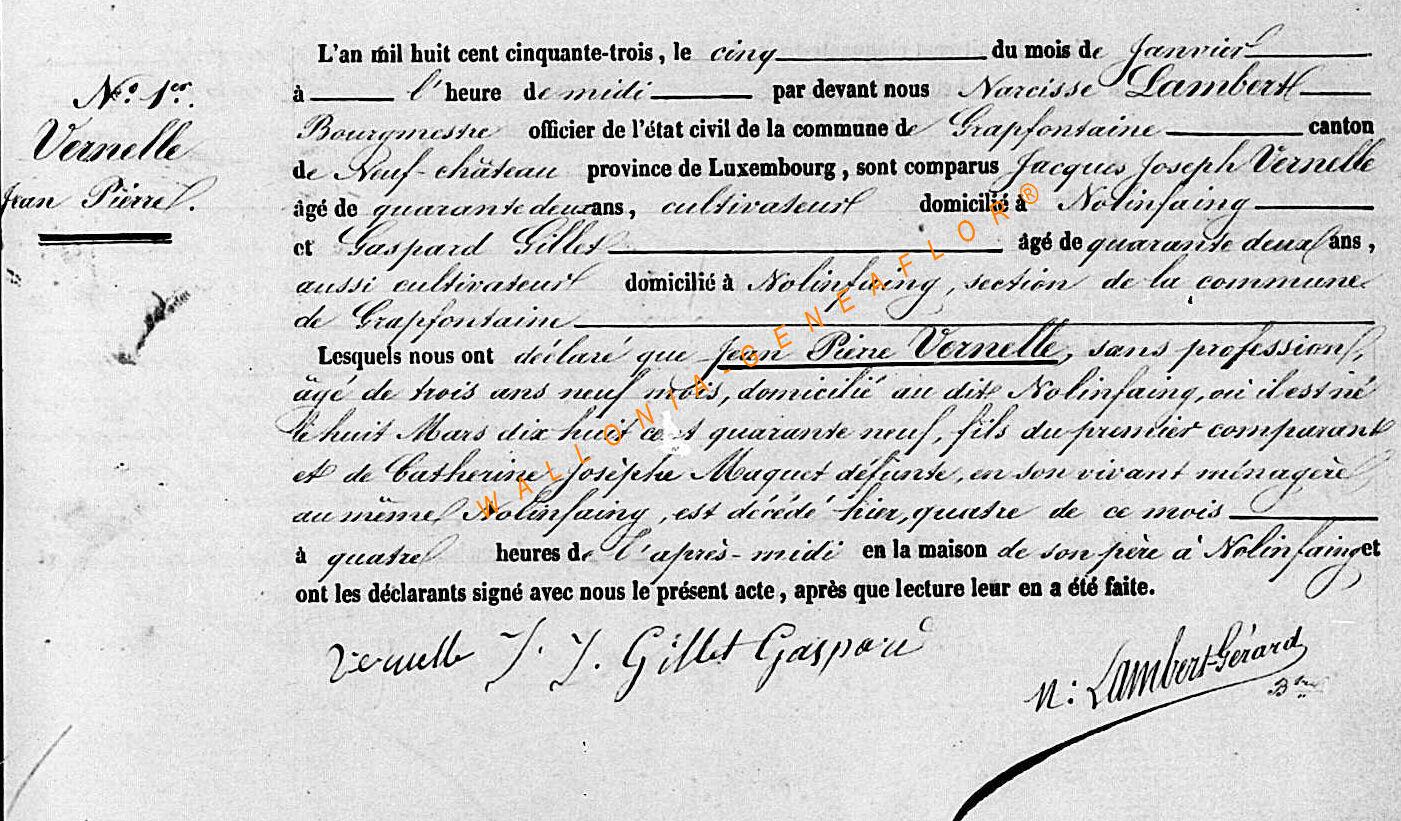 N.º 1er.
Vernelle
Jean Pierre.
L'an mil huit cent cinquante-trois, le cinq du mois de Janvier
à l'heure de midi par devant nous Narcisse Lambert
Bourgmestre officier de l'état civil de la commune de Grapfontaine canton
de Neuf-château province de Luxembourg, sont comparus Jacques Joseph Vernelle
âgé de quarante deux ans, cultivateur domicilié à Nolinfaing
et Gaspard Gillet âgé de quarante deux ans,
aussi cultivateur domicilié à Nolinfaing, section de la commune
de Grapfontaine
Lesquels nous ont déclaré que Jean Pierre Vernelle, sans profession,
âgé de trois ans neuf mois, domicilié au dit Nolinfaing, où il est né
le huit Mars dix huit cent quarante neuf, fils du premier comparant
et de Catherine Josèphe Maquet défunte, en son vivant ménagère
au même Nolinfaing, est décédé hier, quatre de ce mois
à quatre heures de l'après-midi en la maison de son père à Nolinfaing et
ont les déclarants signé avec nous le présent acte, après que lecture leur en a été faite.
Vernelle J. J. Gillet Gaspard
N: Lambert-Gérard
Btre
WALLONIA-GENEAFLOR®